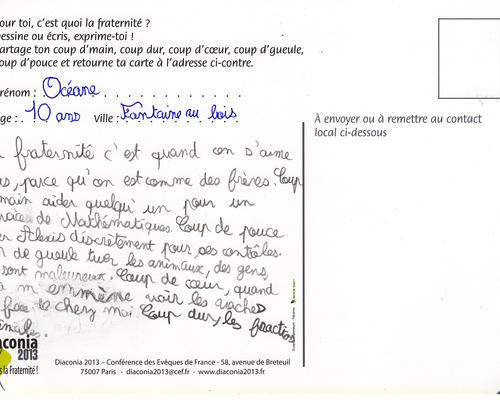 our toi, c'est quoi la fraternité ?
essine ou écris, exprime-toi !
artage ton coup d'main, coup dur, coup d'cœur, coup d'gueule,
oup d'pouce et retourne ta carte à l'adresse ci-contre.
rénom : Océane
ge : 10 ans Ville : Fontaine au bois
À envoyer ou à remettre au contact
local ci-dessous
fraternité c'est quand on s'aime
us, parce qu'on est comme des frères. Coup
main aider quelqu'un pour un
de Mathématiques. Coup de pouce
er Alexis discrètement pour ses contôles.
de gueule tuer les animaux, des gens,
sont maleureux. Coup de cœur, quand
a m'emmène voir les vaches
face de chez moi. Coup dur, les fractions
imales.
aconia
2013
s la Fraternité !
Diaconia 2013 – Conférence des Evêques de France - 58, avenue de Breteuil
75007 Paris - diaconia2013@cef.fr - www.diaconia2013.fr